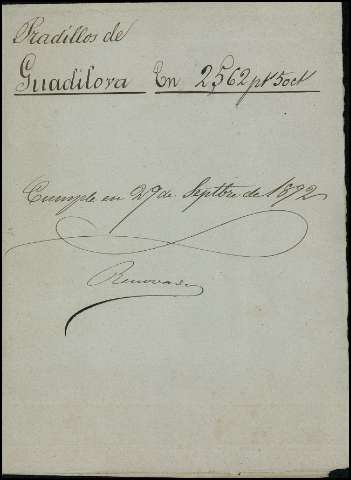 Pradillos de
Guadilova En 2562 pts 50 cts
Cumple en 29 de Septbre de 1892
Renovado